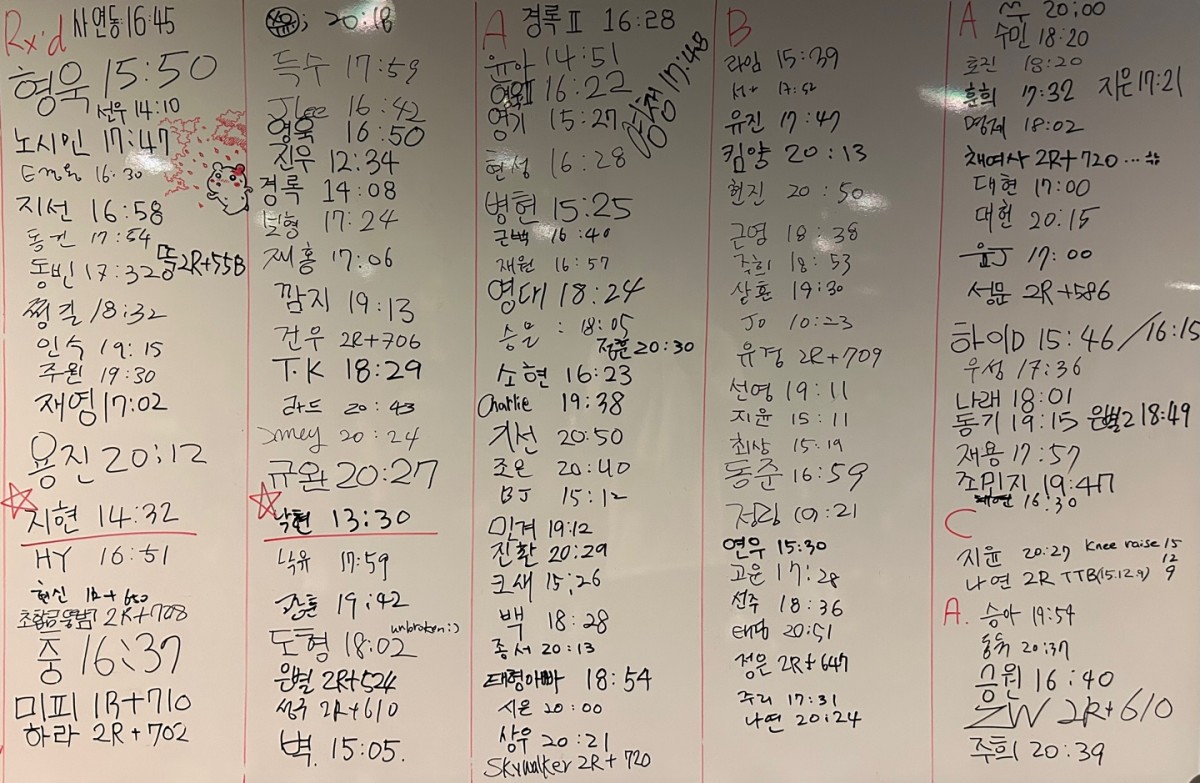 Rx'd 사연동 16:45
형욱 15:50
선우 14:10
노시민 17:47
16:30
지선 16:58
동건 17:54
동빈 17:32 뚱 2R+55B
쩡킬 18:32
인숙 19:15
주원 19:30
재영 17:02
용진 20:12
지현 14:32
HY 16:51
현신
초합금똥밟기 2R+708
중 16:37
미피 1R+710
하라 2R+702
20:18
득수 17:59
JLee 16:42
영욱 16:50
진우 12:34
경록 14:08
보형 17:24
째홍 17:06
깜지 19:13
건우 2R+706
T.K 18:29
라드 20:43
20:24
규완 20:27
낙현 13:30
낙유 17:59
19:42
도형 18:02 unbroken:)
은별 2R+524
성구 2R+610
벽. 15:05.
A 경록Ⅱ 16:28
윤아 14:51
16:22
영기 15:27
17:48
현성 16:28
병헌 15:25
근백 16:40
재원 16:57
영대 18:24
승모 : 18:05
정훈 20:30
소현 16:23
Charlie 19:38
기선 20:50
조은 20:40
BJ 15:12
민겨 19:12
진환 20:29
크새 15:26
백 18:28
종서 20:13
태령아빠 18:54
시온 20:00
상우 20:21
Skywalker 2R+720
B
라임 15:39
17:52
유진 17:47
킴양 20:13
현진 20:50
근영 18:38
주희 18:53
상훈 19:30
Jo 10:23
유경 2R+709
선영 19:11
지윤 15:11
최상 15:19
동준 16:59
정랑 19:21
연우 15:30
고운 17:28
선주 18:36
태명 20:51
정은 2R+647
주리 17:31
나연 20:24
A 20:00
수민 18:20
효진 18:20
훈희 17:32 지은 17:21
명제 18:02
채여사 2R+720 ...
대현 17:00
대헌 20:15
윤J 17:00
성문 2R+586
하이D 15:46/16:15
우성 17:36
나래 18:01
동기 19:15 은별2 18:49
재용 17:57
조민지 19:47
16:30
C
지윤 20:27 Knee raise 15
12
나연 2R TTB(15.12.9) 9
A. 승아 19:54
20:37
응원 16:40
ZW 2R+610
주희 20:39